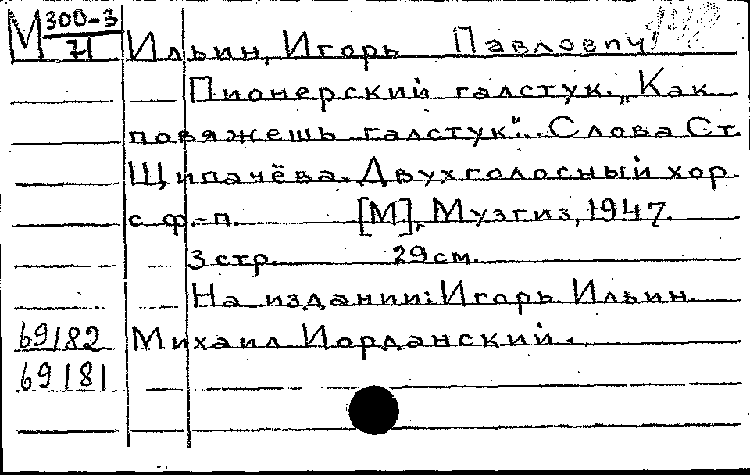 М 300-3/71 Ильин, Игорь Павлович
Пионерский галстук. „Как
повяжешь галстук“... Слова Ст.
Щипачёва. Двухголосный хор
с ф.-п. [М], Музгиз, 1947.
3 стр. 29 см.
На издании: Игорь Ильин.
69182 Михаил Иорданский.
69181